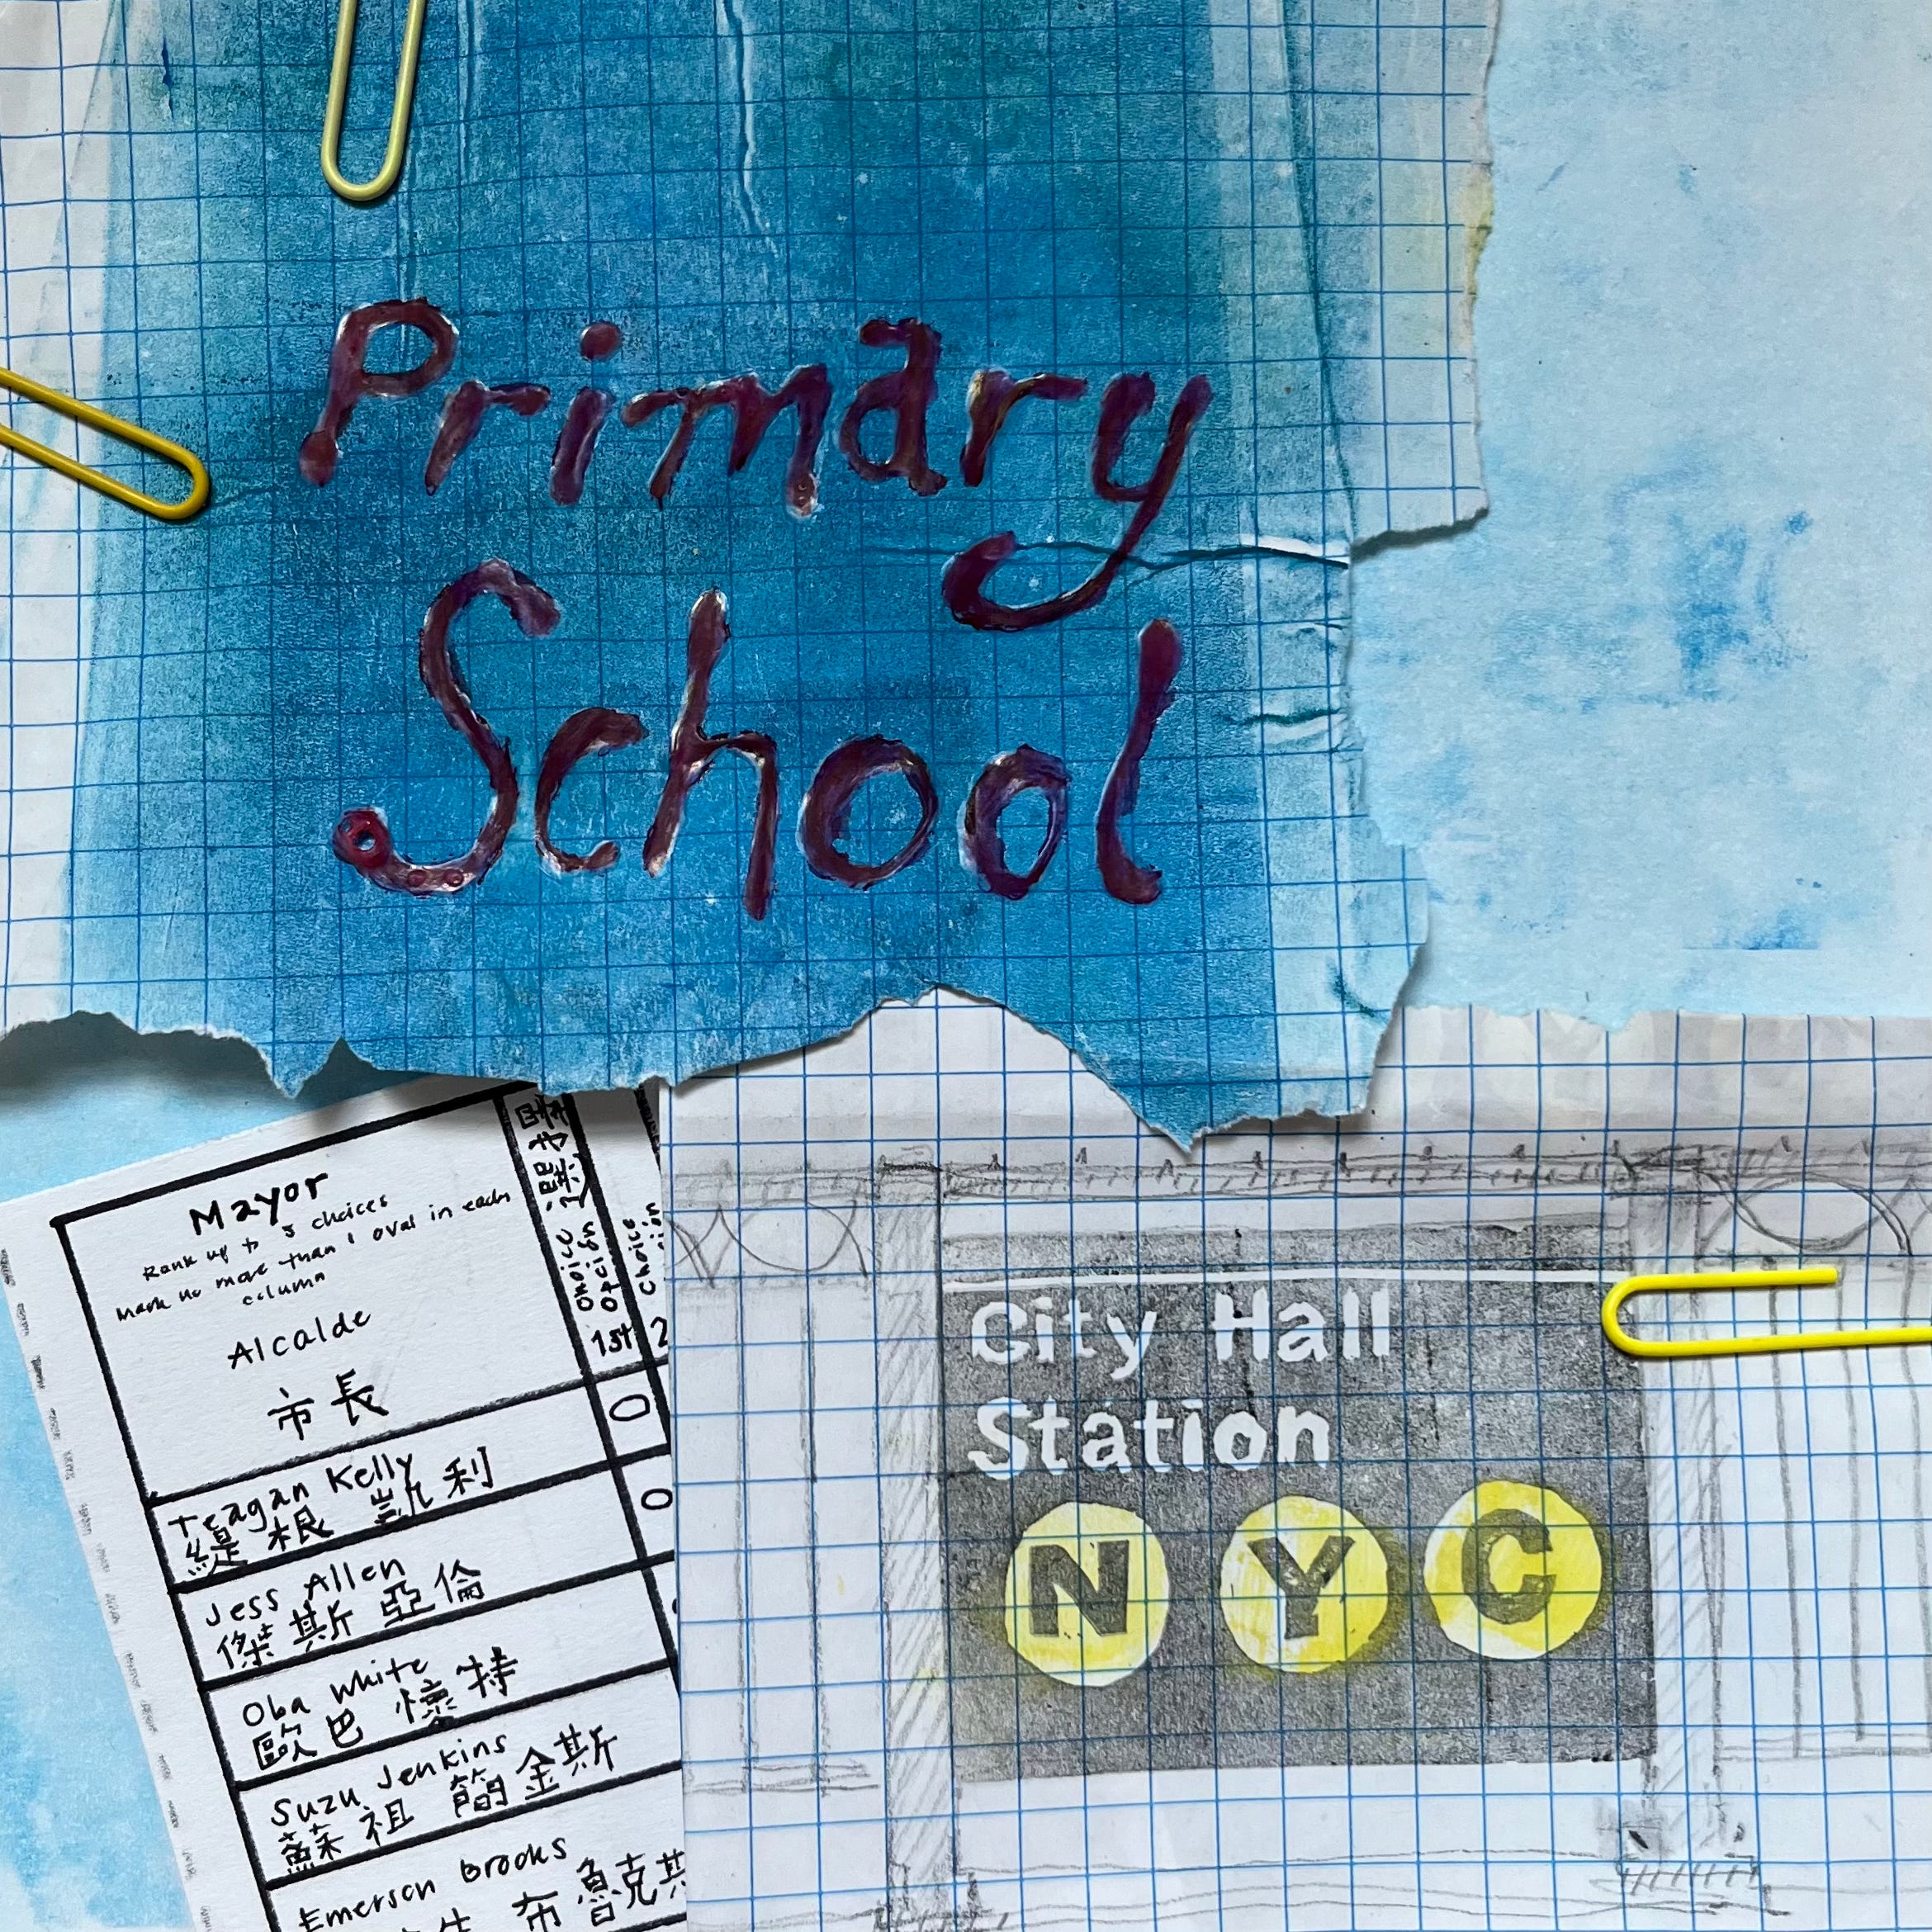 Primary
School
Mayor
Rank up to 5 choices
Mark no more than 1 oval in each
column
Alcalde
市長
1st Choice
Opción
選擇
2
Choice
Teagan Kelly
緹根 凱利
Jess Allen
傑斯 亞倫
Oba White
歐巴 懷特
Suzu Jenkins
蘇祖 簡金斯
Emerson Brooks
布魯克斯
City Hall
Station
N Y C